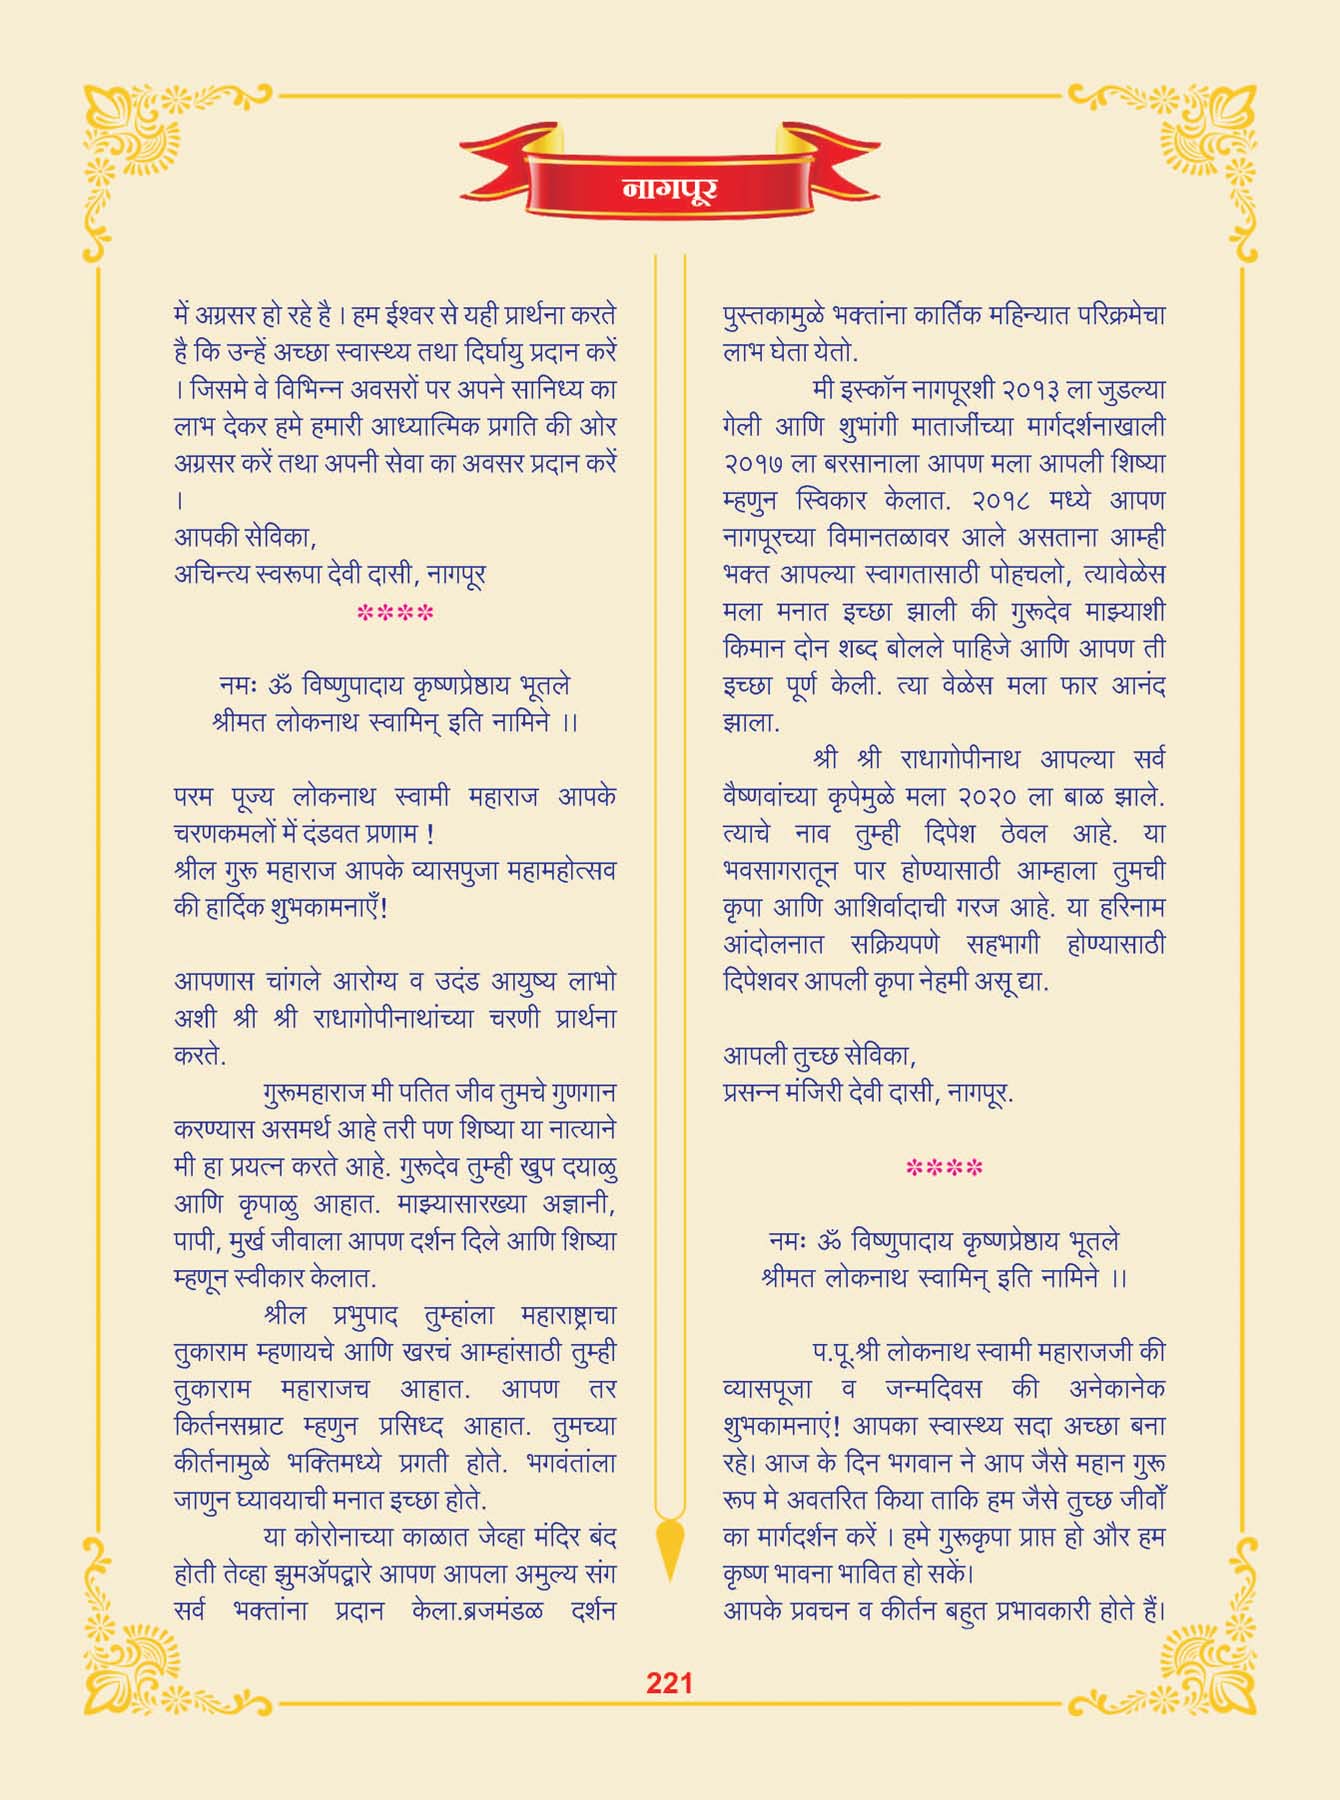 नागपूर
में अग्रसर हो रहे है । हम ईश्वर से यही प्रार्थना करते
है कि उन्हें अच्छा स्वास्थ्य तथा दिर्घायु प्रदान करें
। जिसमे वे विभिन्न अवसरों पर अपने सानिध्य का
लाभ देकर हमे हमारी आध्यात्मिक प्रगति की ओर
अग्रसर करें तथा अपनी सेवा का अवसर प्रदान करें
।
आपकी सेविका,
अचिन्त्य स्वरूपा देवी दासी, नागपूर
****
नमः ॐ विष्णुपादाय कृष्णप्रेष्ठाय भूतले
श्रीमत लोकनाथ स्वामिन् इति नामिने ।।
परम पूज्य लोकनाथ स्वामी महाराज आपके
चरणकमलों में दंडवत प्रणाम !
श्रील गुरू महाराज आपके व्यासपुजा महामहोत्सव
की हार्दिक शुभकामनाएँ!
आपणास चांगले आरोग्य व उदंड आयुष्य लाभो
अशी श्री श्री राधागोपीनाथांच्या चरणी प्रार्थना
करते.
गुरूमहाराज मी पतित जीव तुमचे गुणगान
करण्यास असमर्थ आहे तरी पण शिष्या या नात्याने
मी हा प्रयत्न करते आहे. गुरूदेव तुम्ही खुप दयाळु
आणि कृपाळु आहात. माझ्यासारख्या अज्ञानी,
पापी, मुर्ख जीवाला आपण दर्शन दिले आणि शिष्या
म्हणून स्वीकार केलात.
श्रील प्रभुपाद तुम्हांला महाराष्ट्राचा
तुकाराम म्हणायचे आणि खरचं आम्हांसाठी तुम्ही
तुकाराम महाराजच आहात. आपण तर
किर्तनसम्राट म्हणुन प्रसिध्द आहात. तुमच्या
कीर्तनामुळे भक्तिमध्ये प्रगती होते. भगवंतांला
जाणुन घ्यावयाची मनात इच्छा होते.
या कोरोनाच्या काळात जेव्हा मंदिर बंद
होती तेव्हा झुमॲपद्वारे आपण आपला अमुल्य संग
सर्व भक्तांना प्रदान केला.ब्रजमंडळ दर्शन
पुस्तकामुळे भक्तांना कार्तिक महिन्यात परिक्रमेचा
लाभ घेता येतो.
मी इस्कॉन नागपूरशी २०१३ ला जुडल्या
गेली आणि शुभांगी माताजींच्या मार्गदर्शनाखाली
२०१७ ला बरसानाला आपण मला आपली शिष्या
म्हणुन स्विकार केलात. २०१८ मध्ये आपण
नागपूरच्या विमानतळावर आले असताना आम्ही
भक्त आपल्या स्वागतासाठी पोहचलो, त्यावेळेस
मला मनात इच्छा झाली की गुरूदेव माझ्याशी
किमान दोन शब्द बोलले पाहिजे आणि आपण ती
इच्छा पूर्ण केली. त्या वेळेस मला फार आनंद
झाला.
श्री श्री राधागोपीनाथ आपल्या सर्व
वैष्णवांच्या कृपेमुळे मला २०२० ला बाळ झाले.
त्याचे नाव तुम्ही दिपेश ठेवल आहे. या
भवसागरातून पार होण्यासाठी आम्हाला तुमची
कृपा आणि आशिर्वादाची गरज आहे. या हरिनाम
आंदोलनात सक्रियपणे सहभागी होण्यासाठी
दिपेशवर आपली कृपा नेहमी असू द्या.
आपली तुच्छ सेविका,
प्रसन्न मंजिरी देवी दासी, नागपूर.
****
नमः ॐ विष्णुपादाय कृष्णप्रेष्ठाय भूतले
श्रीमत लोकनाथ स्वामिन् इति नामिने ।।
प.पू.श्री लोकनाथ स्वामी महाराजजी की
व्यासपूजा व जन्मदिवस की अनेकानेक
शुभकामनाएं! आपका स्वास्थ्य सदा अच्छा बना
रहे। आज के दिन भगवान ने आप जैसे महान गुरू
रूप मे अवतरित किया ताकि हम जैसे तुच्छ जीवोँ
का मार्गदर्शन करें । हमे गुरूकृपा प्राप्त हो और हम
कृष्ण भावना भावित हो सकें।
आपके प्रवचन व कीर्तन बहुत प्रभावकारी होते हैं।
221